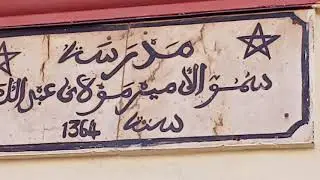 مدرسة
سمو الامير مولاي عبد الله
سنة
1364